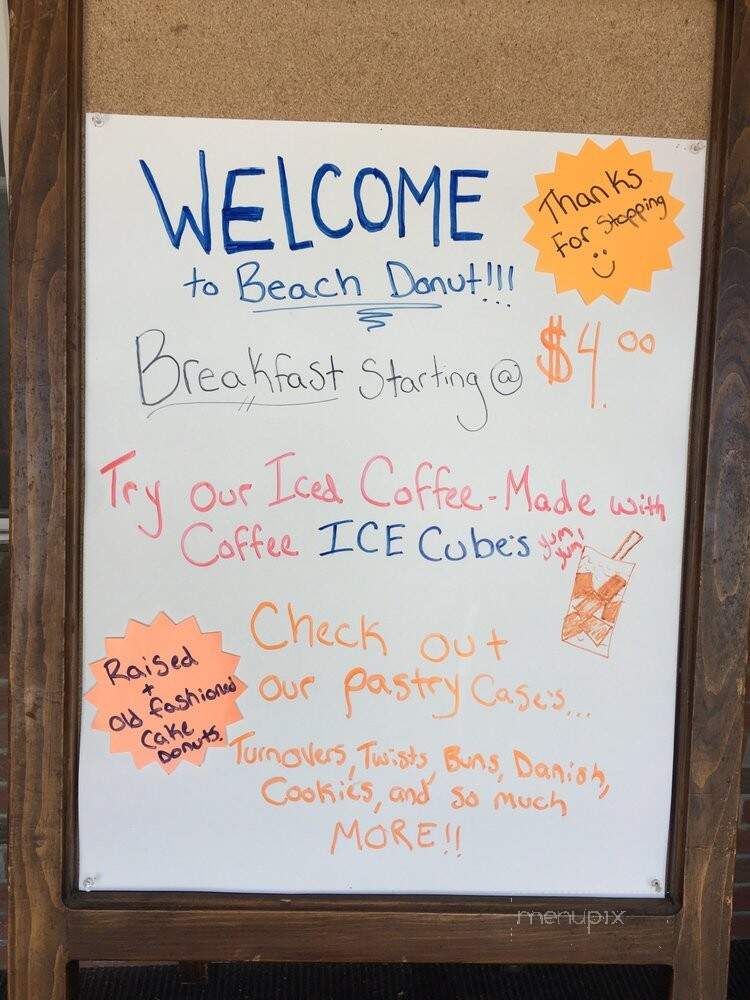 WELCOME
to Beach Donut!!!
Thanks
For Stopping
Breakfast Starting @ $4.00
Try our Iced Coffee - Made with
Coffee ICE Cubes yum
yum!
Check out
our pastry Cases...
Raised
+
old fashioned
Cake
Donuts.
Turnovers, Twists, Buns, Danish,
Cookies, and so much
MORE!!
menupix